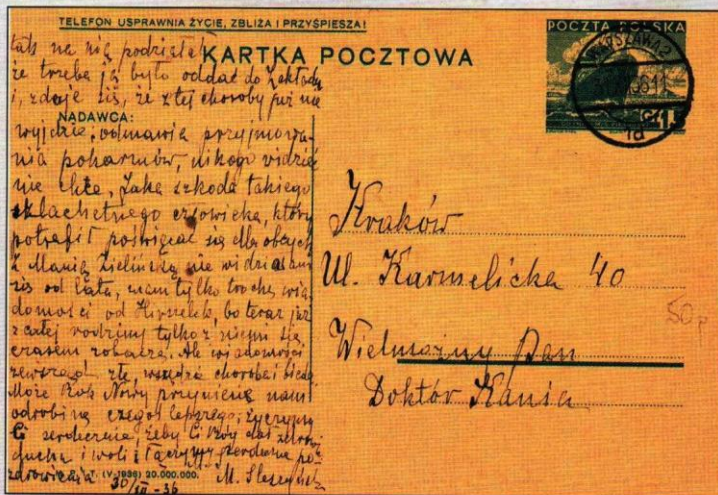 TELEFON USPRAWNIA ŻYCIE, ZBLIŻA I PRZYŚPIESZA!
POCZTA POLSKA
WARSZAWA 2
KARTKA POCZTOWA
tak na nią podziałał
że trzeba ją było oddać do Zakładu
i, zdaje się, że z tej choroby już nie
NADAWCA:
wyjdzie, odmawia przyjmowa-
nia pokarmów, nikogo widzieć
nie chce. Jaka szkoda takiego
szlachetnego człowieka, który
potrafił poświęcać się dla obcych
Z Manią Zielińską nie widziałam
się od lata, mam tylko trochę wia
domości od Hirnelek, bo teraz już
z całej rodziny tylko z niemi się
czasem zobaczę. Ale wiadomości
zewsząd złe, wszędzie choroba i bieda
Może Rok Nowy przyniesie nam
odrobinę czegoś lepszego, życzymy
Ci serdecznie, żeby Ci Bóg dał zdrow
ducha i woli i łączymy serdeczne po
zdrowienia
M.
30/XII - 36
(V-1936) 20.000.000.
Kraków
Ul. Karmelicka 40
Wielmożny Pan
Doktór Kania
50p